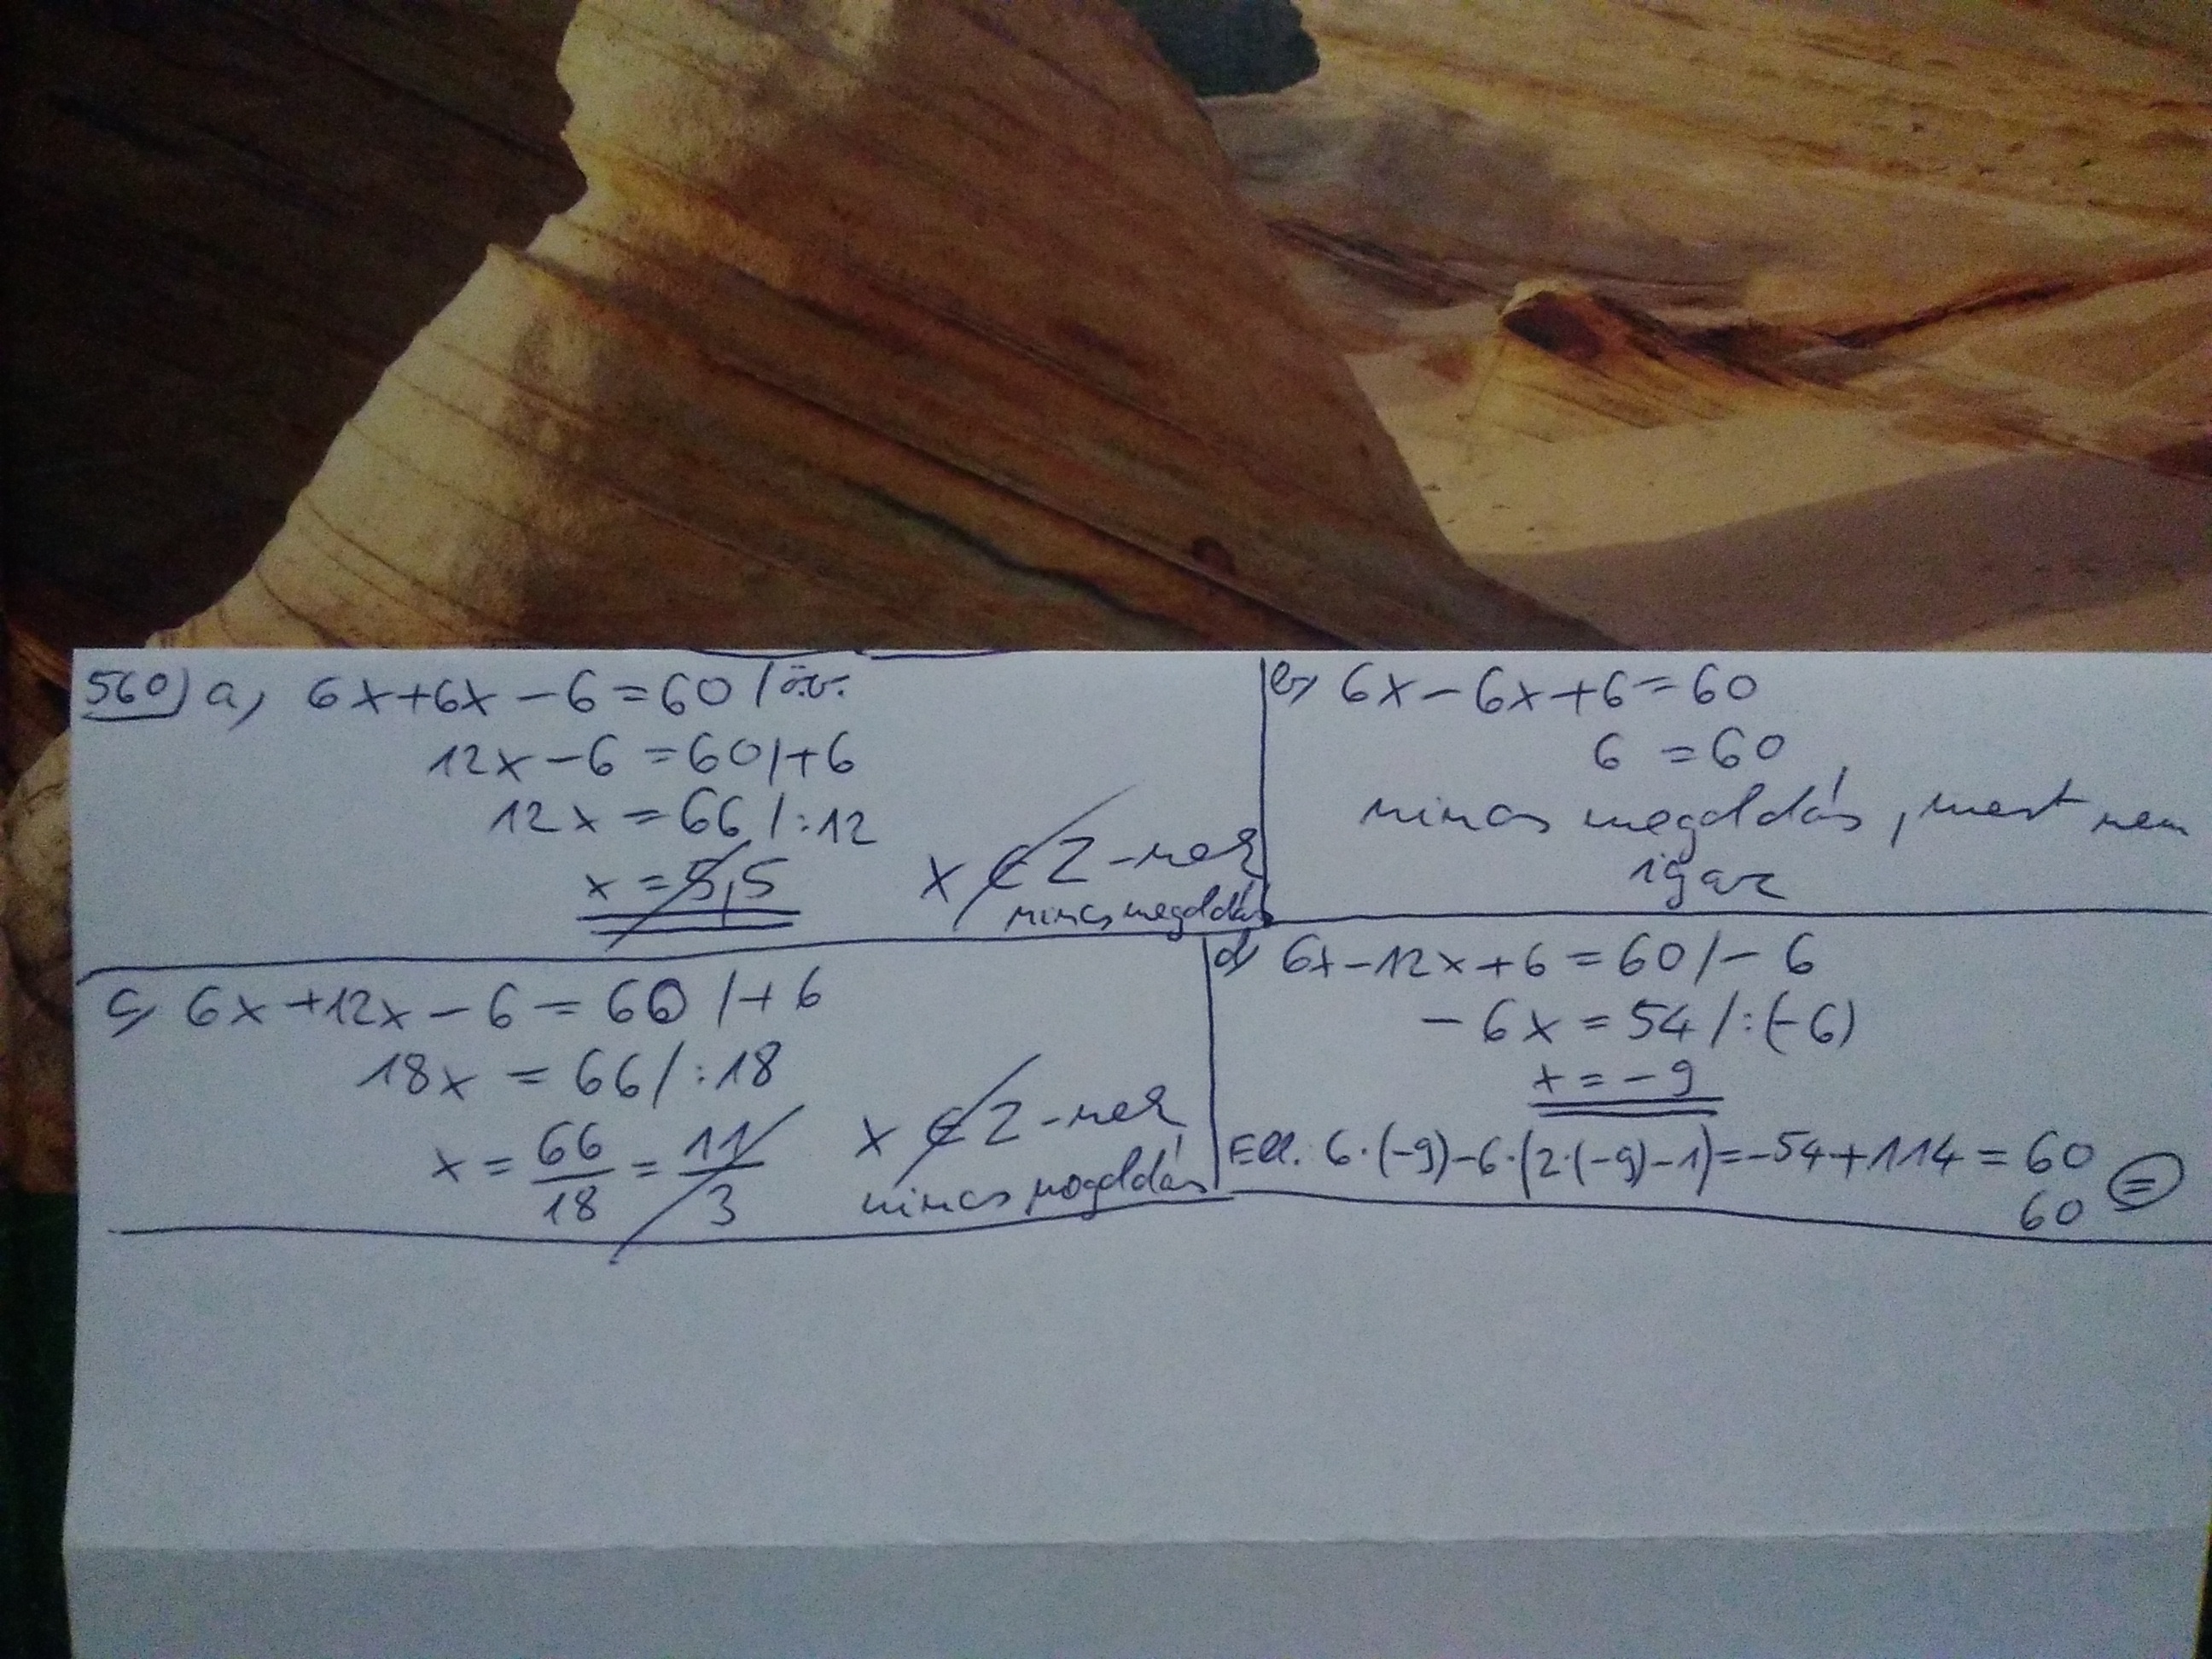 560) a, 6x+6x-6=60 /ö.v.
12x-6=60 /+6
12x=66 /:12
x=5,5
x∉Z-nek
nincs megoldás
b, 6x-6x+6=60
6=60
nincs megoldás, mert nem
igaz
c, 6x+12x-6=60 /+6
18x=66 /:18
x=66/18=11/3
x∉Z-nek
nincs mogoldás
d, 6x-12x+6=60 /-6
-6x=54 /:(-6)
x=-9
Ell. 6·(-9)-6·(2·(-9)-1)=-54+114=60
60 =